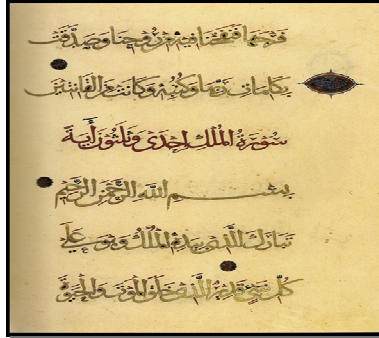 فرجها فنفخنا فيه من روحنا وصدقت
بكلمات ربها وكتبه وكانت من القانتين
سورة الملك احدى وثلثون آية
بسم الله الرحمن الرحيم
تبارك الذي بيده الملك وهو على
كل شيء قدير الذي خلق الموت والحيوة